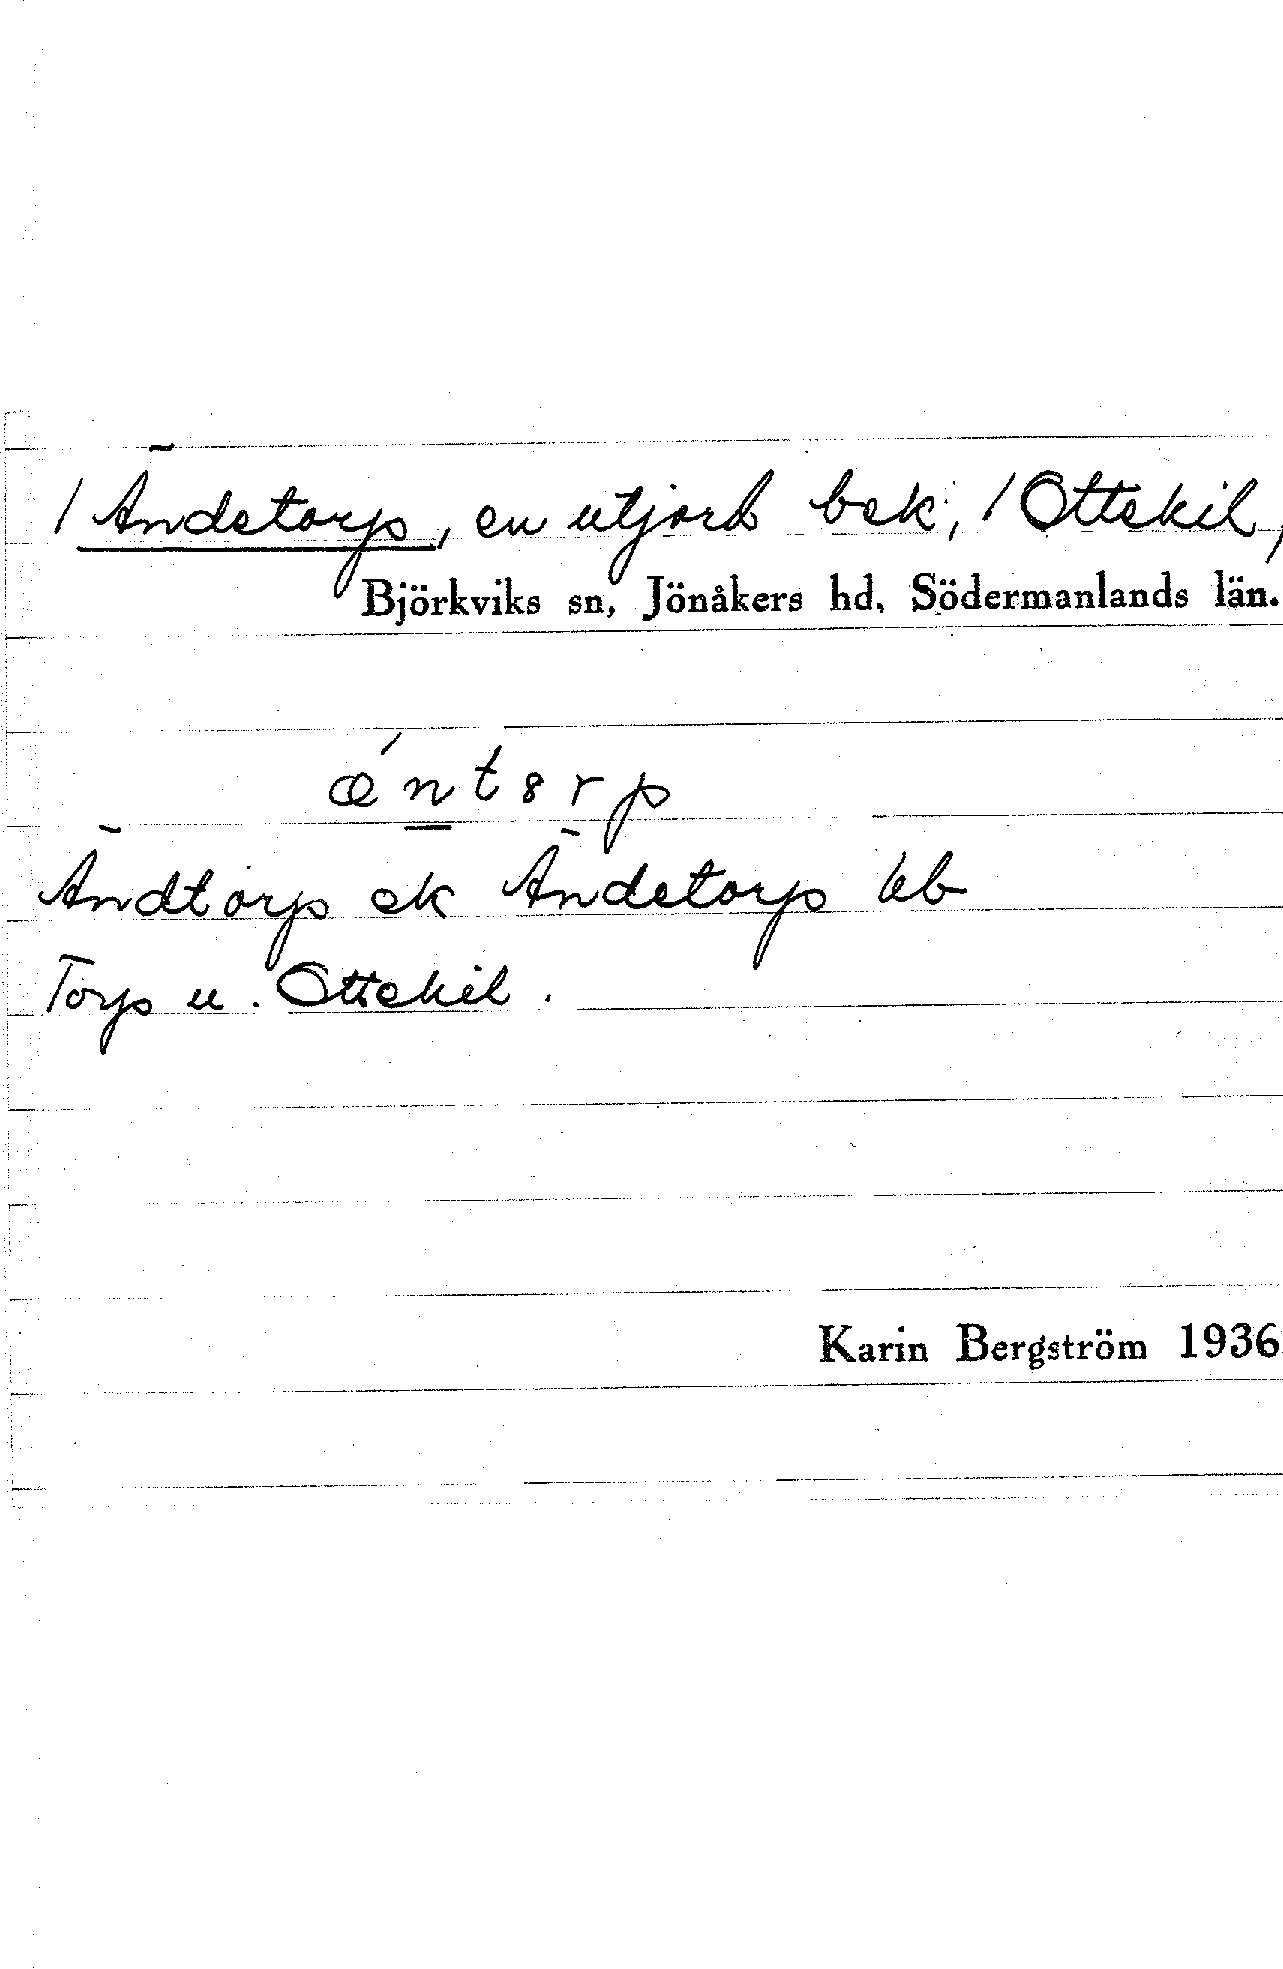 / Ändetorp, en utjord bek, / Ottekil,
Björkviks sn, Jönåkers hd, Södermanlands län.
ǽntɵrp
Ändtorp ek Ändetorp kb
Torp u. Ottekil.
Karin Bergström 1936